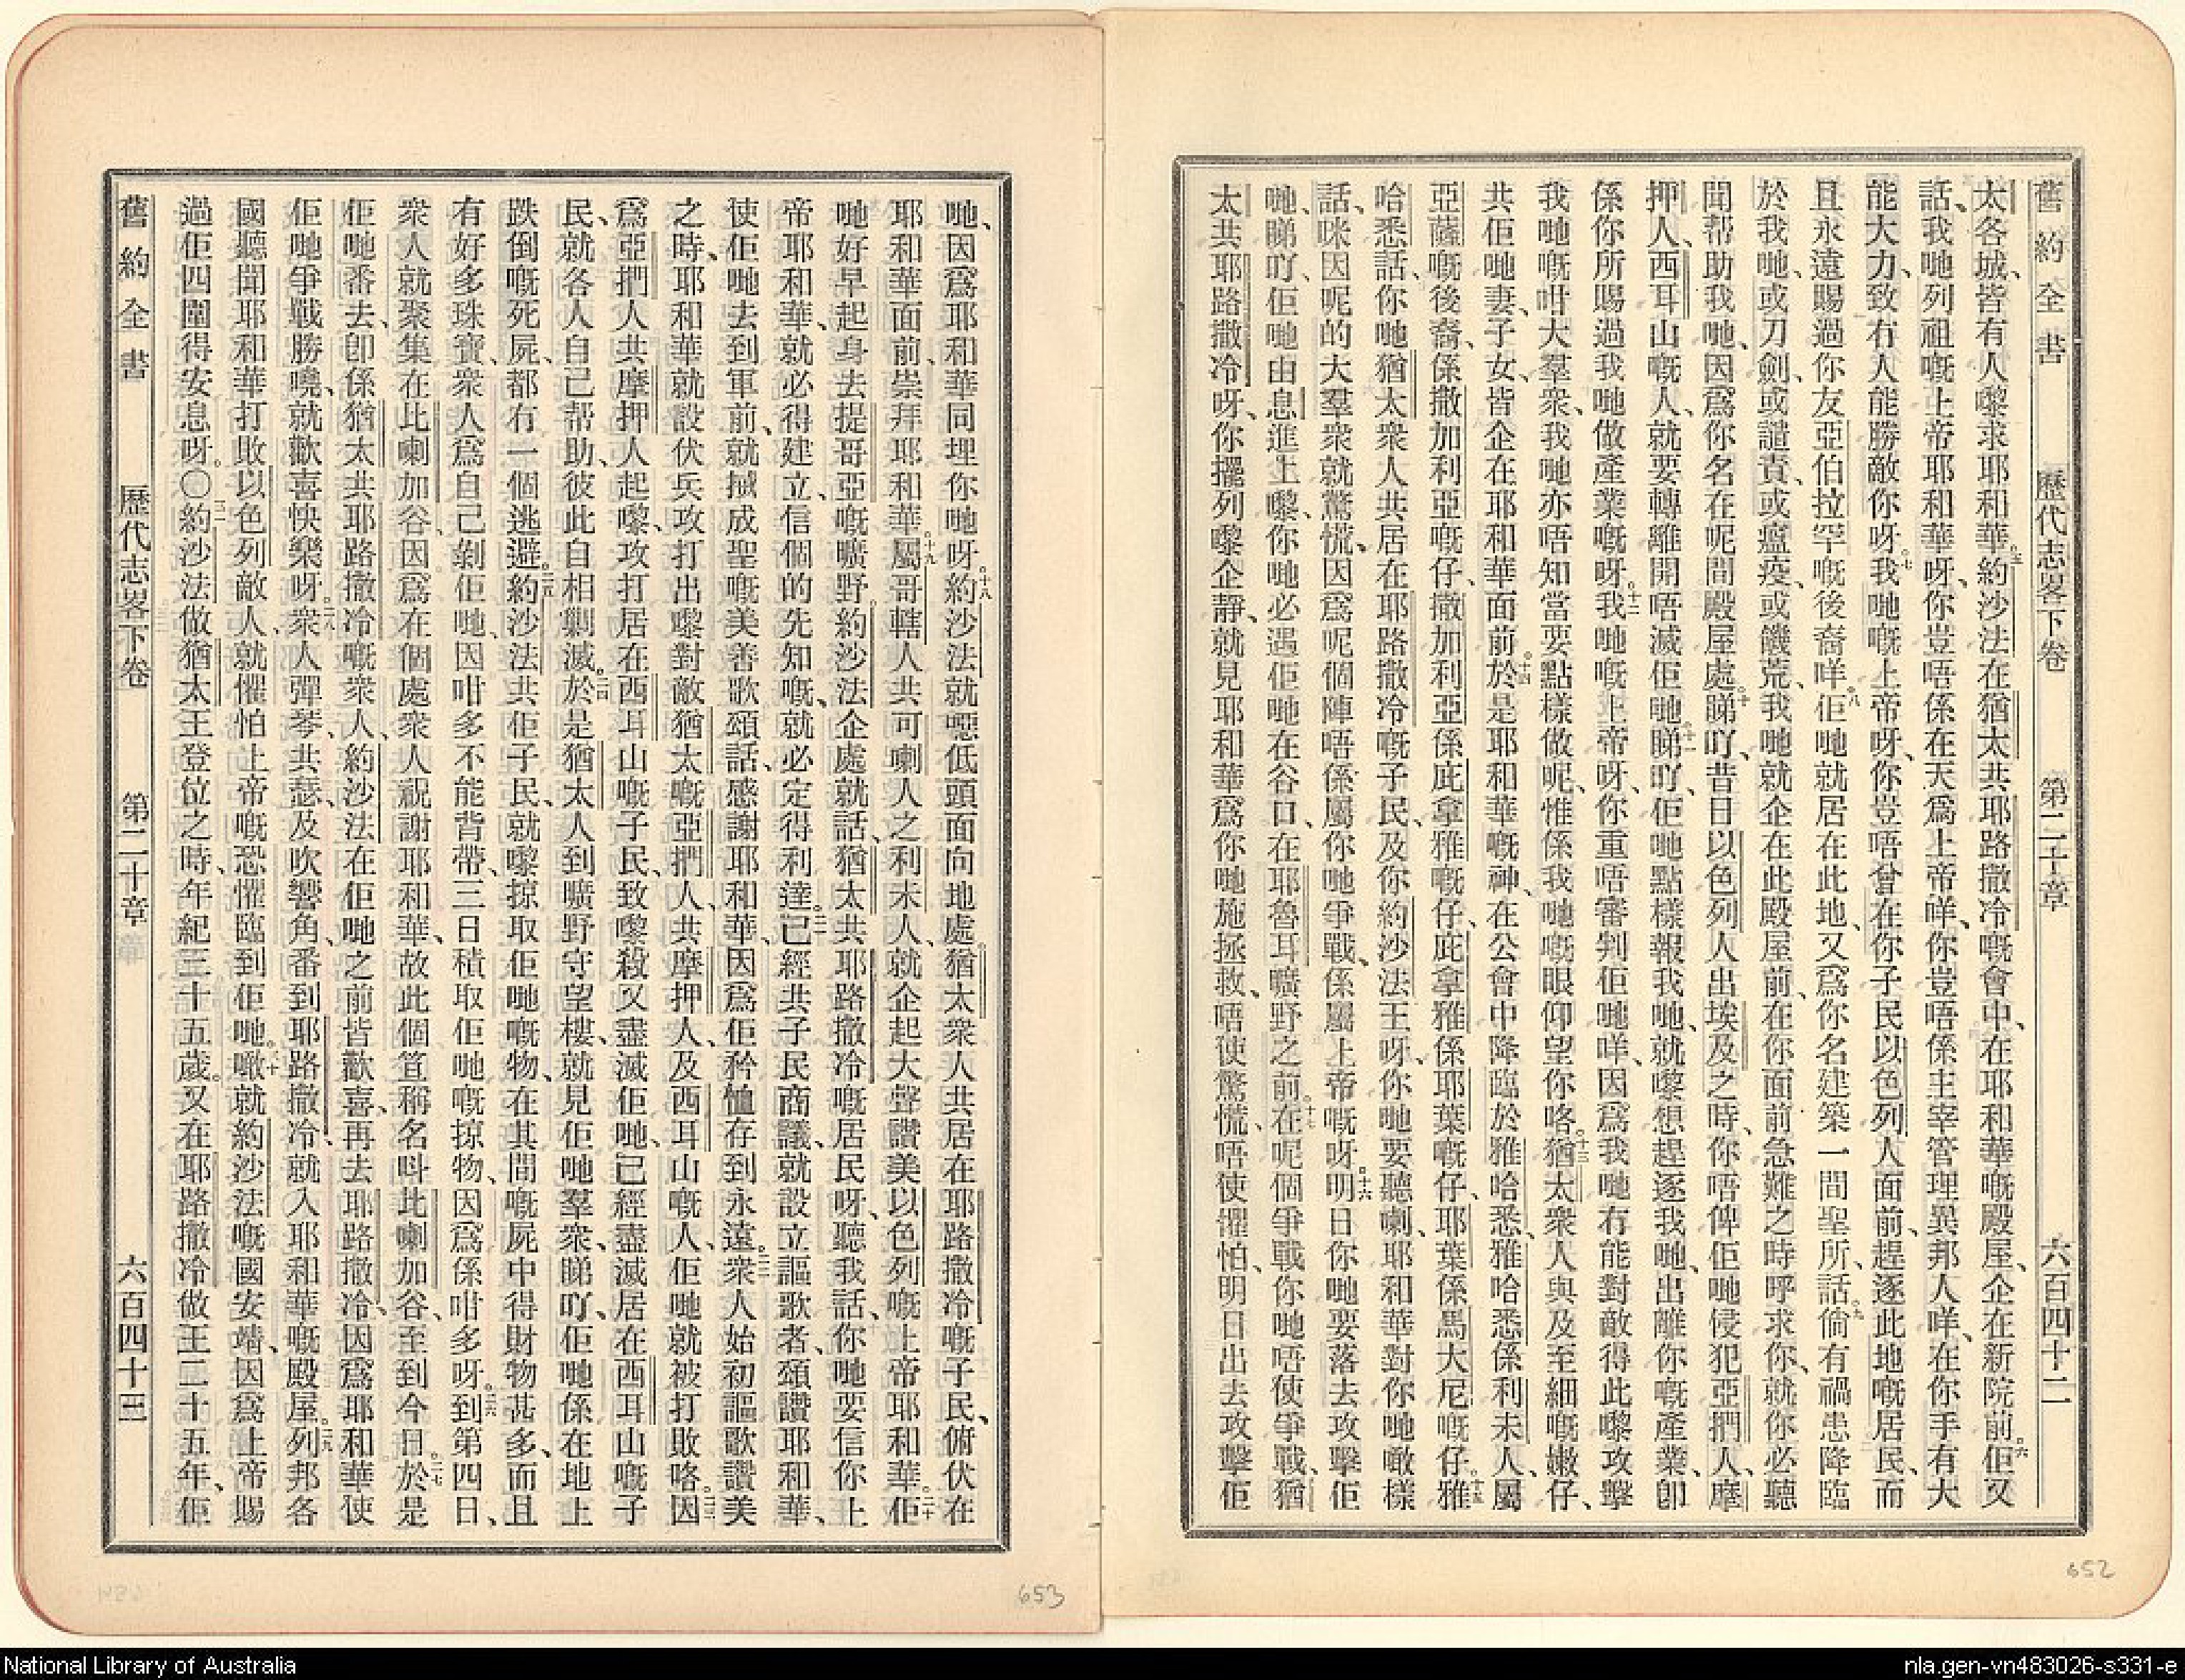 舊約全書 歷代志畧下卷 第二十章 六百四十二
太各城、皆有人嚟求耶和華。五約沙法在猶太共耶路撒冷嘅會中、在耶和華嘅殿屋、企在新院前。六佢又
話、我哋列祖嘅上帝耶和華呀、你豈唔係在天爲上帝咩、你豈唔係主宰管理異邦人咩、在你手有大
能大力、致冇人能勝敵你呀。七我哋嘅上帝呀、你豈唔曾在你子民以色列人面前、趕逐此地嘅居民、而
且永遠賜過你友亞伯拉罕嘅後裔咩。八佢哋就居在此地、又爲你名建築一間聖所、話、九倘有禍患降臨
於我哋、或刀劍、或譴責、或瘟疫、或饑荒、我哋就企在此殿屋前、在你面前、急難之時呼求你、就你必聽
聞帮助我哋、因爲你名在呢間殿屋處。十睇吖、昔日以色列人出埃及之時、你唔俾佢哋侵犯亞捫人、摩
押人、西耳山嘅人、就要轉離開唔滅佢哋。十一睇吖、佢哋點樣報我哋、就嚟想趕逐我哋、出離你嘅產業、卽
係你所賜過我哋做產業嘅呀。十二我哋嘅上帝呀、你重唔審判佢哋咩、因爲我哋冇能對敵得此嚟攻擊
我哋嘅咁大羣衆、我哋亦唔知當要點樣做呢、惟係我哋嘅眼仰望你咯。十三猶太衆人與及至細嘅嫩仔、
共佢哋妻、子女、皆企在耶和華面前。十四於是耶和華嘅神、在公會中降臨於雅哈悉、雅哈悉係利未人、屬
亞薩嘅後裔、係撒加利亞嘅仔、撒加利亞係庇拿雅嘅仔、庇拿雅係耶葉嘅仔、耶葉係馬大尼嘅仔。十五雅
哈悉話、你哋猶太衆人共居在耶路撒冷嘅子民、及你約沙法王呀、你哋要聽喇、耶和華對你哋噉樣
話、咪因呢的大羣衆就驚慌、因爲呢個陣唔係屬你哋爭戰、係屬上帝嘅呀。十六明日你哋要落去攻擊佢
哋、睇吖、佢哋由息進上嚟、你哋必遇佢哋在谷口、在耶魯耳曠野之前。十七在呢個爭戰你哋唔使爭戰、猶
太共耶路撒冷呀、你擺列嚟企靜、就見耶和華爲你哋施拯救、唔使驚慌、唔使懼怕、明日出去攻擊佢
652
哋、因爲耶和華同埋你哋呀。十八約沙法就𠵇低頭面向地處。猶太衆人共居在耶路撒冷嘅子民、俯伏在
耶和華面前、崇拜耶和華。十九屬哥轄人共可喇人之利未人、就企起大聲讚美以色列嘅上帝耶和華。二十佢
哋好早起身去提哥亞嘅曠野。約沙法企處就話、猶太共耶路撒冷嘅居民呀、聽我話、你哋要信你上
帝耶和華、就必得建立、信個的先知嘅、就必定得利達。二一已經共子民商議、就設立謳歌者、頌讚耶和華、
使佢哋去到軍前、就搣成聖嘅美善歌頌話、感謝耶和華、因爲佢矜恤存到永遠。二二衆人始初謳歌讚美
之時、耶和華就設伏兵攻打出嚟對敵猶太嘅亞捫人、共摩押人、及西耳山嘅人、佢哋就被打敗咯。二三因
爲亞捫人共摩押人起嚟、攻打居在西耳山嘅子民、致嚟殺又盡滅佢哋、已經盡滅居在西耳山嘅子
民、就各人自己帮助、彼此自相剿滅。二四於是猶太人到曠野守望樓、就見佢哋羣衆、睇吖、佢哋係在地上
跌倒嘅死屍、都冇一個逃避。二五約沙法共佢子民、就嚟掠取佢哋嘅物、在其間嘅屍中得財物甚多、而且
有好多珠寶、衆人爲自己剝佢哋、因咁多不能背帶、三日積取佢哋嘅掠物、因爲係咁多呀。二六到第四日、
衆人就聚集在比喇加谷、因爲在個處衆人祝謝耶和華、故此個笪稱名呌比喇加谷、至到今日。二七於是
佢哋番去、卽係猶太共耶路撒冷嘅衆人、約沙法在佢哋之前、皆歡喜、再去耶路撒冷、因爲耶和華使
佢哋爭戰勝嘵、就歡喜快樂呀。二八衆人彈琴、共瑟、及吹響角、番到耶路撒冷、就入耶和華嘅殿屋。二九列邦各
國聽聞耶和華打敗以色列敵人、就懼怕上帝嘅恐懼臨到佢哋。三十噉就約沙法嘅國安靖、因爲上帝賜
過佢四圍得安息呀。〇三一約沙法做猶太王登位之時、年紀三十五歲。又在耶路撒冷做王二十五年、佢
舊約全書 歷代志畧下卷 第二十章 六百四十三
653
National Library of Australia
nla.gen-vn483026-s331-e